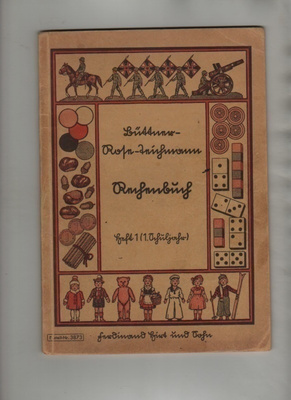 Büttner-
Rose-Teichmann
Rechenbuch
Heft 1 (1. Schuljahr)
Ferdinand Hirt und Sohn